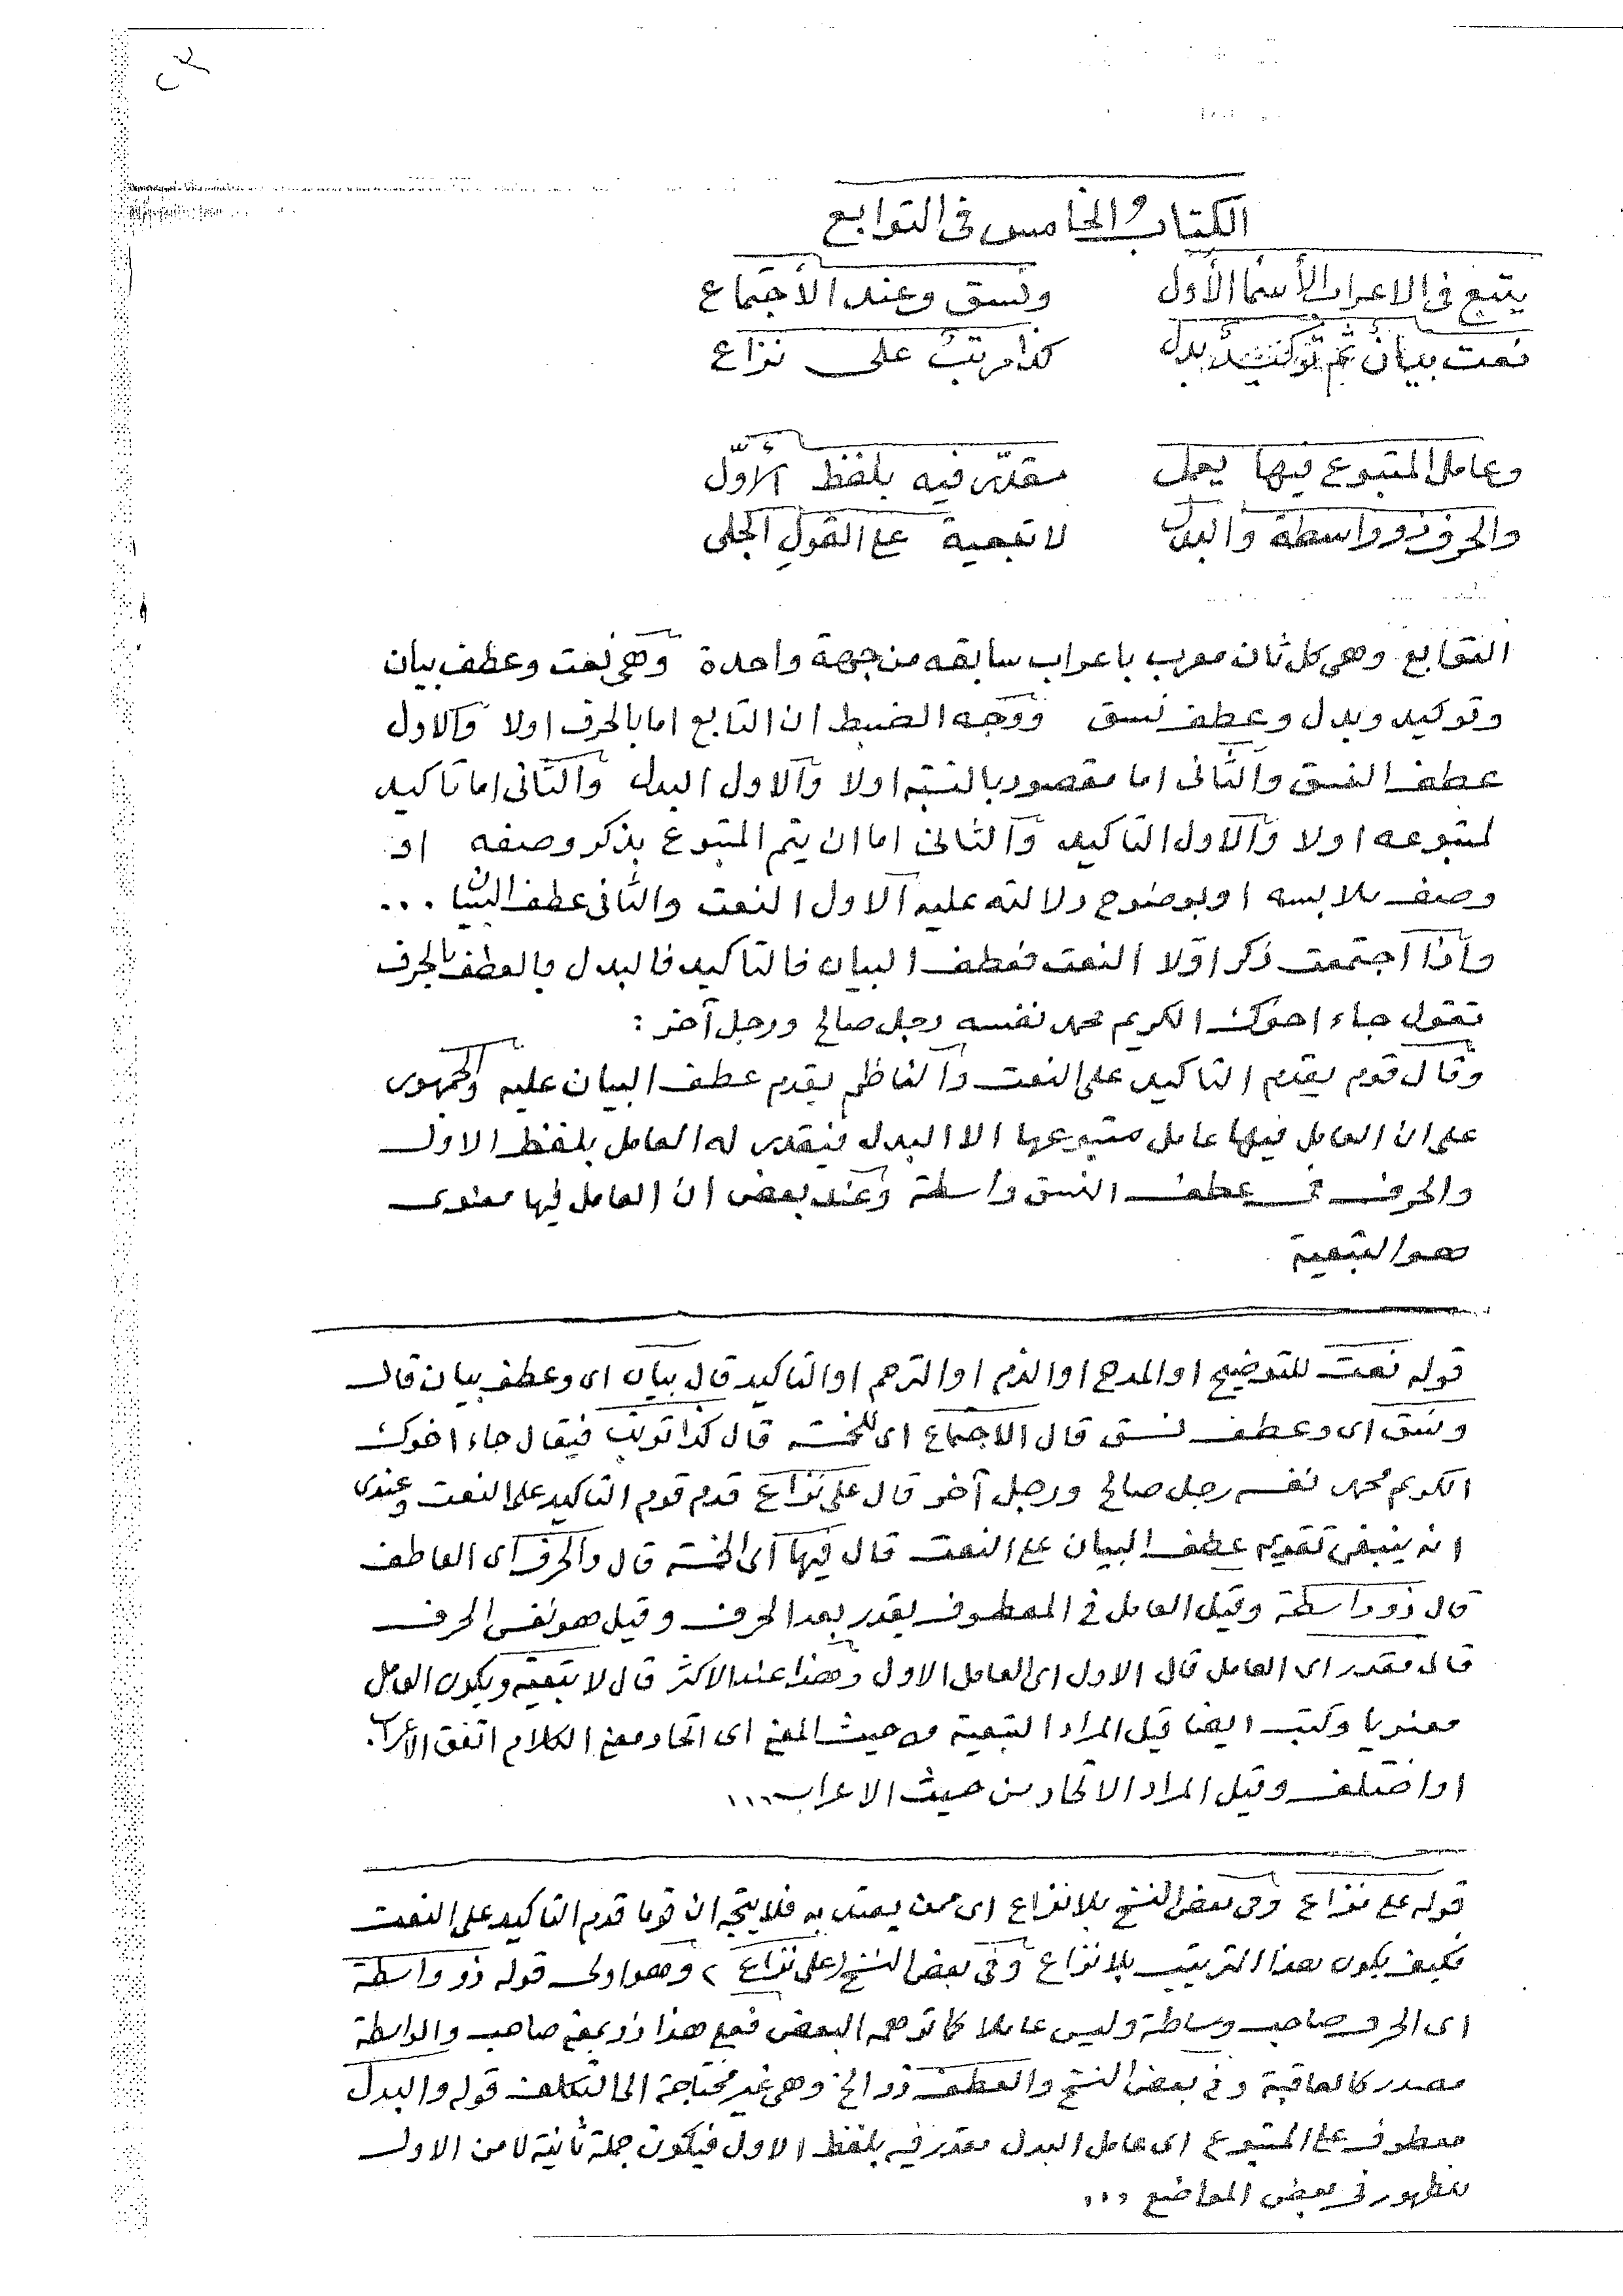 ٢٣
الكتاب الخامس فى التوابع
يتبع فى الاعراب الأسما الأول ونسق وعند الأجتماع
نعت بيان ثم توكيد بدل كذا مرتب على نزاع
وعامل المتبوع فيها يعمل مقدر فيه بلفظ الأول
والحرف ذو واسطة والبدل لا تبعية على القول الجلى
التوابع وهى كل ثان معرب باعراب سابقه من جهة واحدة وهى نعت وعطف بيان
وتوكيد وبدل وعطف نسق ووجه الضبط ان التابع اما بالحرف اولا والاول
عطف النسق والثانى اما مقصود بالنسبة اولا والاول البدل والثانى اما تاكيد
لمتبوعه اولا والاول التاكيد والثانى اما ان يتم المتبوع بذكر وصفه او
وصف ملابسه او بوضوح دلالته عليه الاول النعت والثانى عطف البيان ...
واذا اجتمعت ذكر اوّلا النعت فعطف البيان فالتاكيد فالبدل فالعطف بالحرف
تقول جاء اخوك الكريم محمد نفسه رجل صالح ورجل آخر :
وقال قوم يقدم التاكيد على النعت والناظم يقدم عطف البيان عليه والجمهور
على ان العامل فيها عامل متبوعها الا البدل فيقدر له العامل بلفظ الاول
والحرف فى عطف النسق واسطة وعند بعض ان العامل فيها معنوى
هو التبعية
قوله نعت للتوضيح او المدح او الذم او الترحم او التاكيد قال بيان اى وعطف بيان قال
ونسق اى وعطف نسق قال الاجتماع اى للخمسة قال كذا ترتب فيقال جاء اخوك
الكريم محمد نفسه رجل صالح ورجل آخر قال على نزاع قدم قوم التاكيد على النعت وعندى
انه ينبغى تقديم عطف البيان على النعت قال فيها اى الخمسة قال والحرف اى العاطف
قال ذو واسطة وقيل العامل فى المعطوف يقدر بعد الحرف وقيل هو نفس الحرف
قال مقدر اى العامل قال الاول اى العامل الاول وهذا عند الاكثر قال لا تبعية ويكون العامل
معنويا وكتب ايضا قيل المراد التبعية من حيث المعنى اى اتحاد معنى الكلام اتفق الأعراب
او اختلف وقيل المراد الاتحاد من حيث الاعراب ...
قوله على نزاع وفى بعض النسخ بلا نزاع اى ممن يعتد به فلا يتجه ان قوما قدم التاكيد على النعت
فكيف يكون هذا الترتيب بلا نزاع وفى بعض النسخ (على نزاع) وهو اولى قوله ذو واسطة
اى الحرف صاحب وساطة وليس عاملا كما توهمه البعض فعلى هذا ذو بمعنى صاحب والواسطة
مصدر كالعاقبة وفى بعض النسخ والعطف ذو الخ وهى غير محتاجة الى التكلف قوله والبدل
معطوف على المتبوع اى عامل البدل مقدر فيه بلفظ الاول فيكون جملة ثانية لا من الاول
لظهور فى بعض المواضع ...